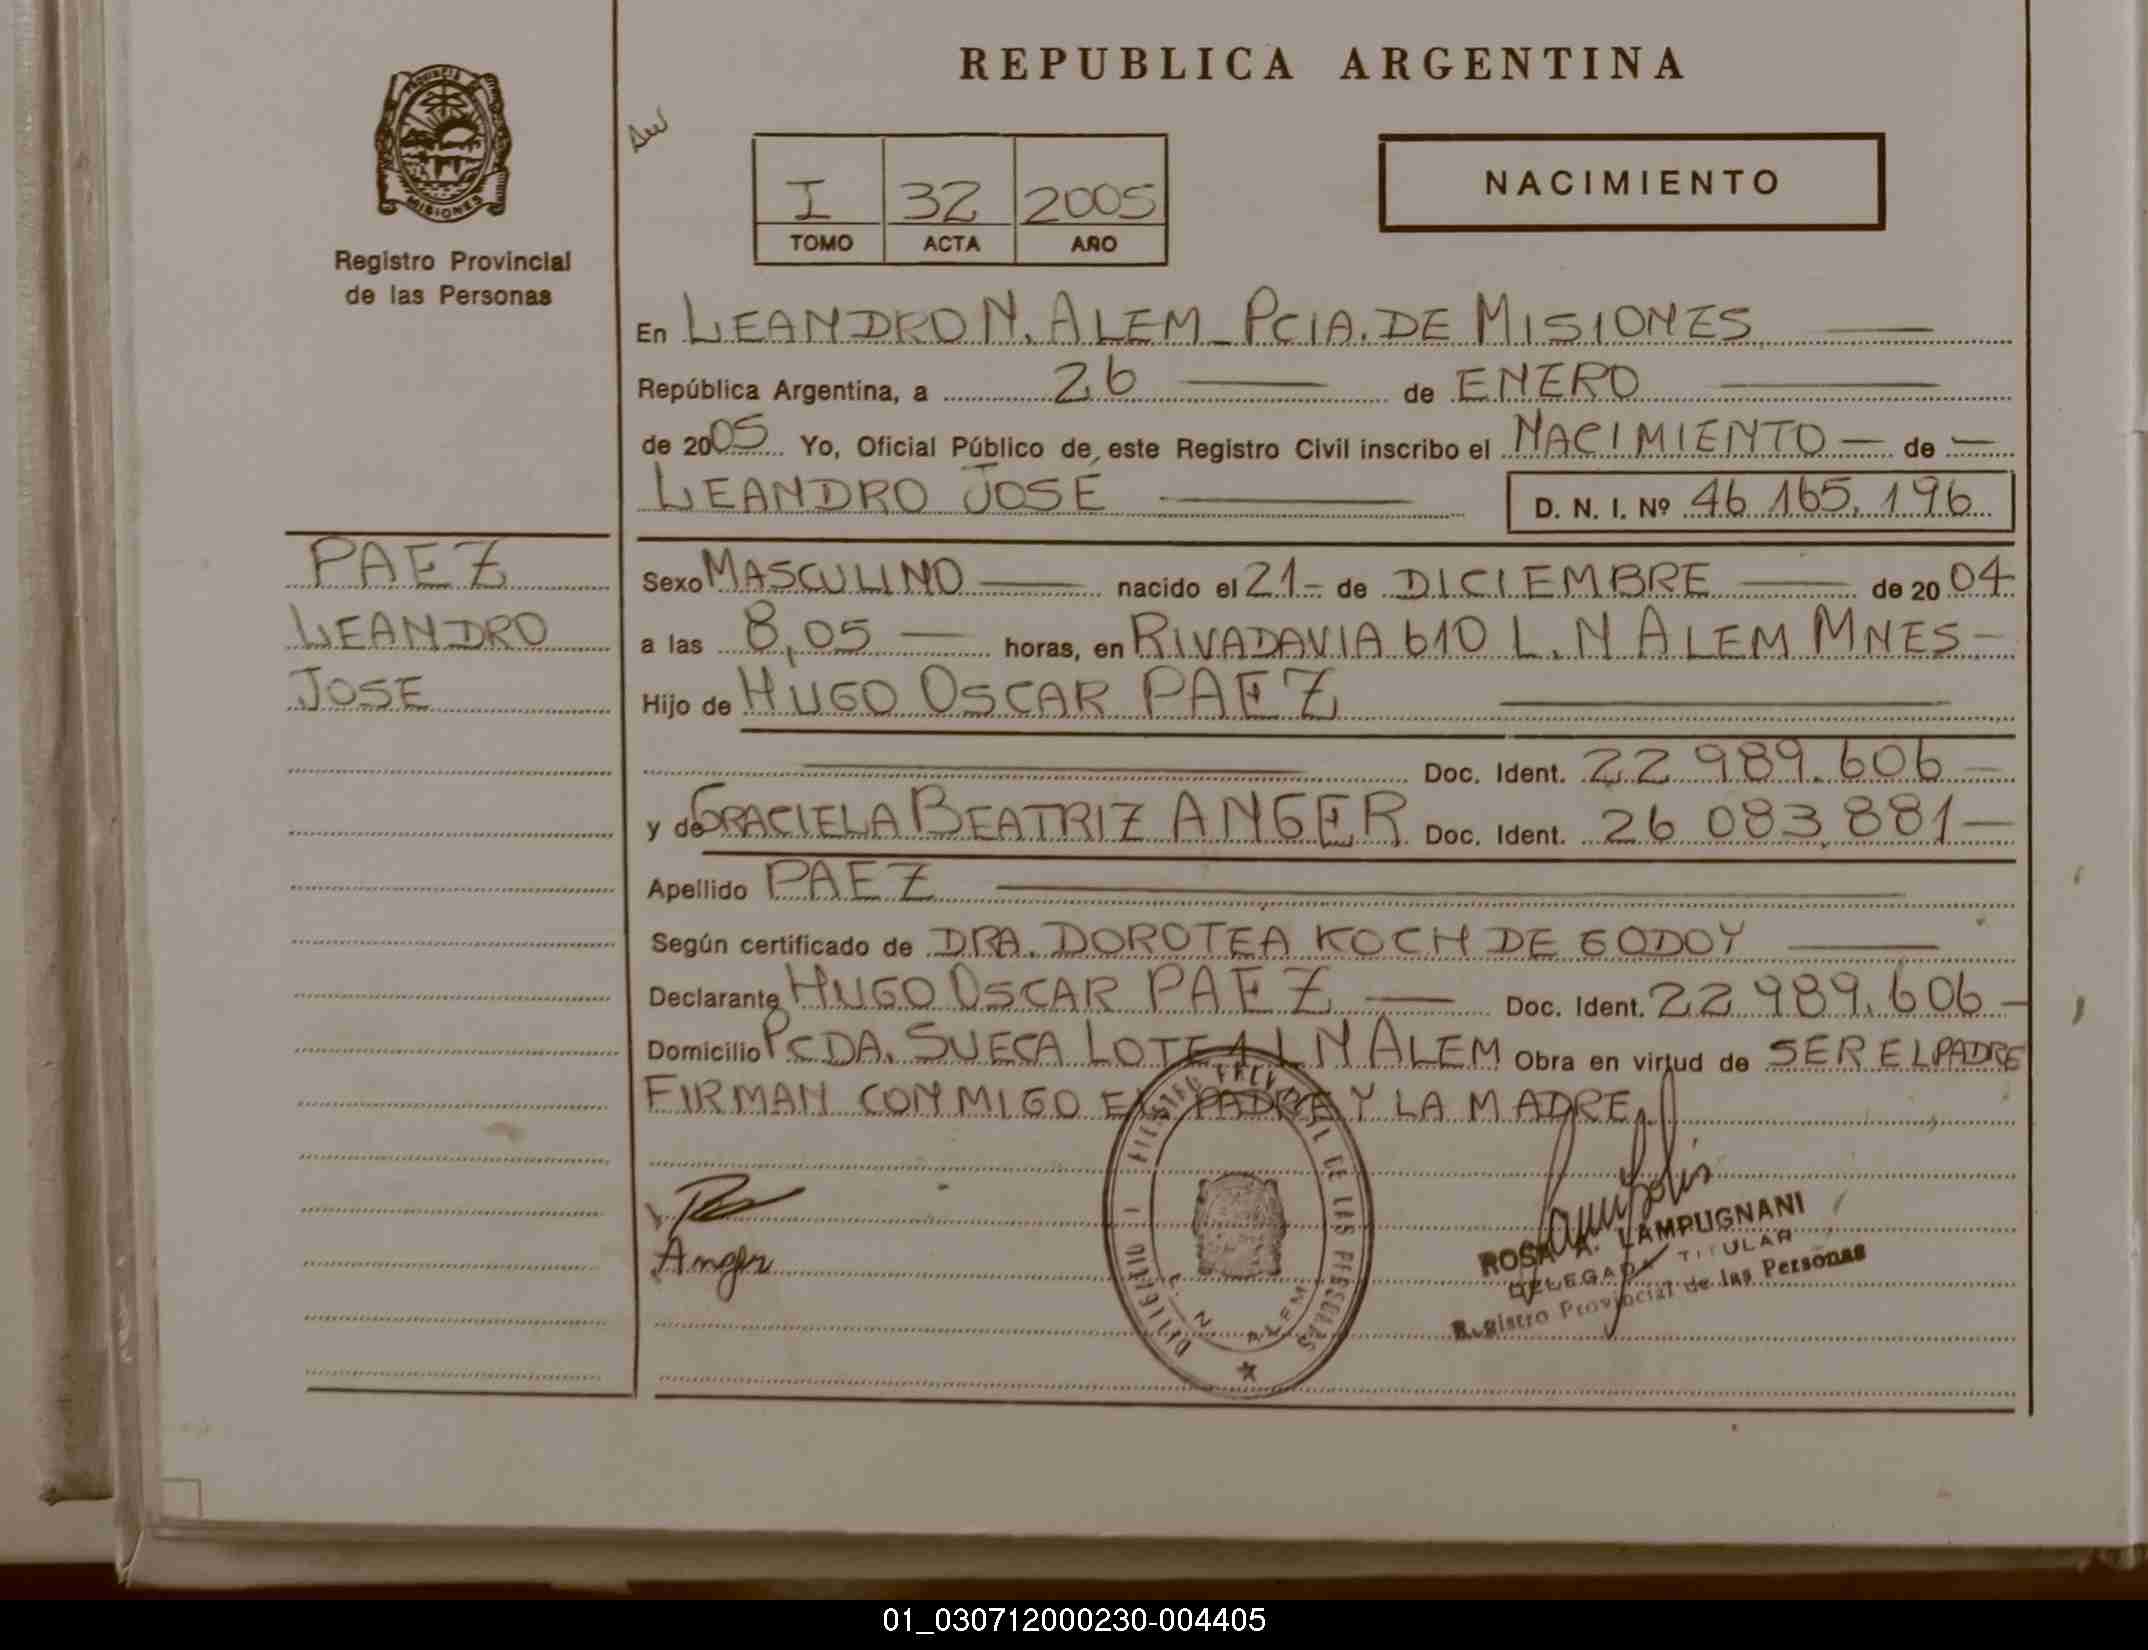 REPUBLICA ARGENTINA
PROVINCIA DE
MISIONES
Registro Provincial
de las Personas
I 32 2005
TOMO ACTA AÑO
NACIMIENTO
En LEANDRO N. ALEM - PCIA. DE MISIONES
República Argentina, a 26 de ENERO
de 2005 Yo, Oficial Público de este Registro Civil inscribo el NACIMIENTO de
LEANDRO JOSÉ D. N. I. Nº 46.165.196
PAEZ
LEANDRO
JOSE
Sexo MASCULINO nacido el 21 - de DICIEMBRE de 2004
a las 8,05 horas, en RIVADAVIA 610 L. N ALEM MNES -
Hijo de HUGO OSCAR PAEZ
Doc. Ident. 22 989.606 -
y de GRACIELA BEATRIZ ANGER Doc. Ident. 26 083.881 -
Apellido PAEZ
Según certificado de DRA. DOROTEA KOCH DE GODOY
Declarante HUGO OSCAR PAEZ Doc. Ident. 22 989.606 -
Domicilio PCDA. SUECA LOTE 1 L N ALEM Obra en virtud de SER EL PADRE
FIRMAN CONMIGO EL PADRE Y LA MADRE.
Anger
DE LAS PERSONAS
L. N. ALEM
ROSA A. LAMPUGNANI
DELEGADA TITULAR
Registro Provincial de las Personas
01_030712000230-004405